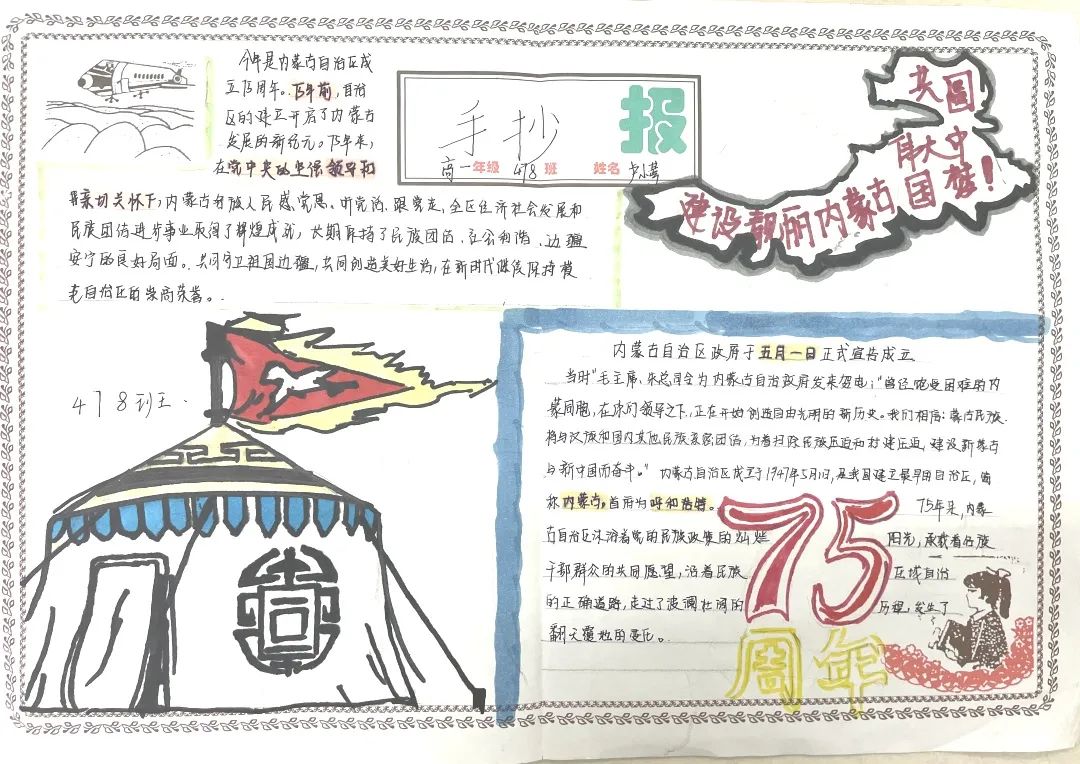 今年是内蒙古自治区成
立75周年。75年前,自治
区的建立开启了内蒙古
发展的新纪元。75年来,
在党中央的坚强领导和
亲切关怀下,内蒙古各族人民感党恩、听党话、跟党走,全区经济社会发展和
民族团结进步事业取得了辉煌成就,长期保持了民族团结、社会和谐、边疆
安宁的良好局面。共同守卫祖国边疆,共同创造美好生活,在新时代继续保持模
范自治区的崇高荣誉。
手抄报
高一年级 478班 姓名
共圆
伟大中
建设靓丽内蒙古 国梦!
478班
内蒙古自治区政府于五月一日正式宣告成立
当时"毛主席、朱总司令为内蒙古自治政府发来贺电:"曾经饱受困难的内
蒙同胞,在你们领导之下,正在开始创造自由光明的新历史。我们相信:蒙古民族
将与汉族和国内其他民族亲密团结,为着扫除民族压迫和封建压迫,建设新蒙古
与新中国而奋斗。"内蒙古自治区成立于1947年5月1日,是我国建立最早的自治区,简
称内蒙古。首府为呼和浩特。 75年来,内蒙
古自治区沐浴着党的民族政策的灿烂 阳光,承载着各族
干部群众的共同愿望,沿着民族 区域自治
的正确道路,走过了波澜壮阔的 历程,发生了
翻天覆地的变化。
75
周年